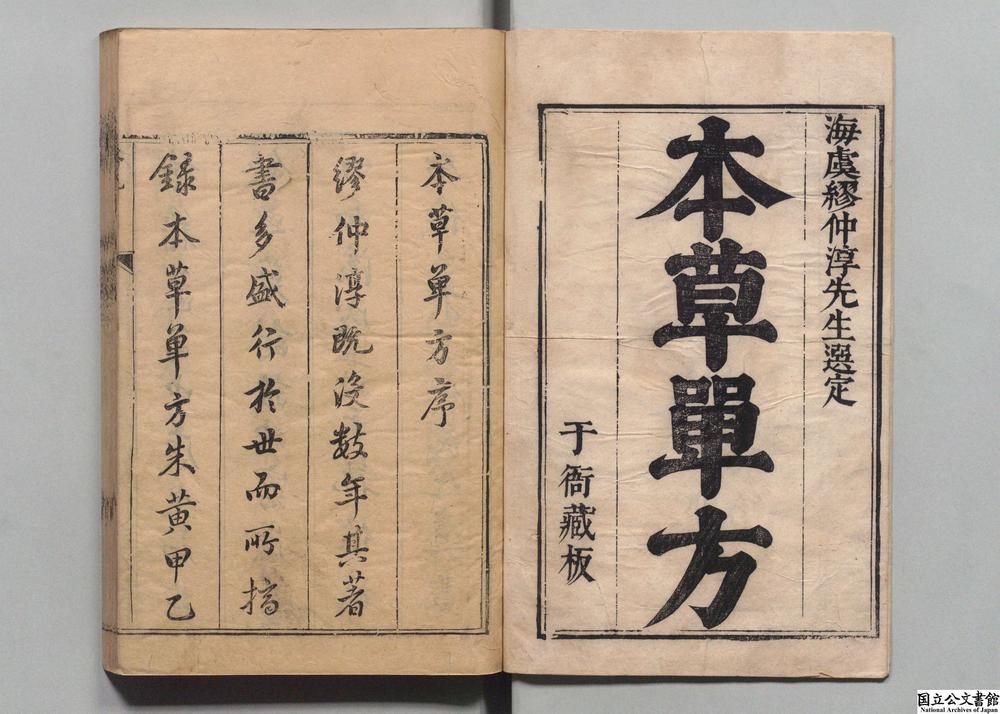 海虞繆仲淳先生選定
本草單方
于衙藏板
本草单方序
繆仲淳既没数年其著
書多盛行於世而所摘
錄本草单方朱黄甲乙
国立公文書館
National Archives of Japan